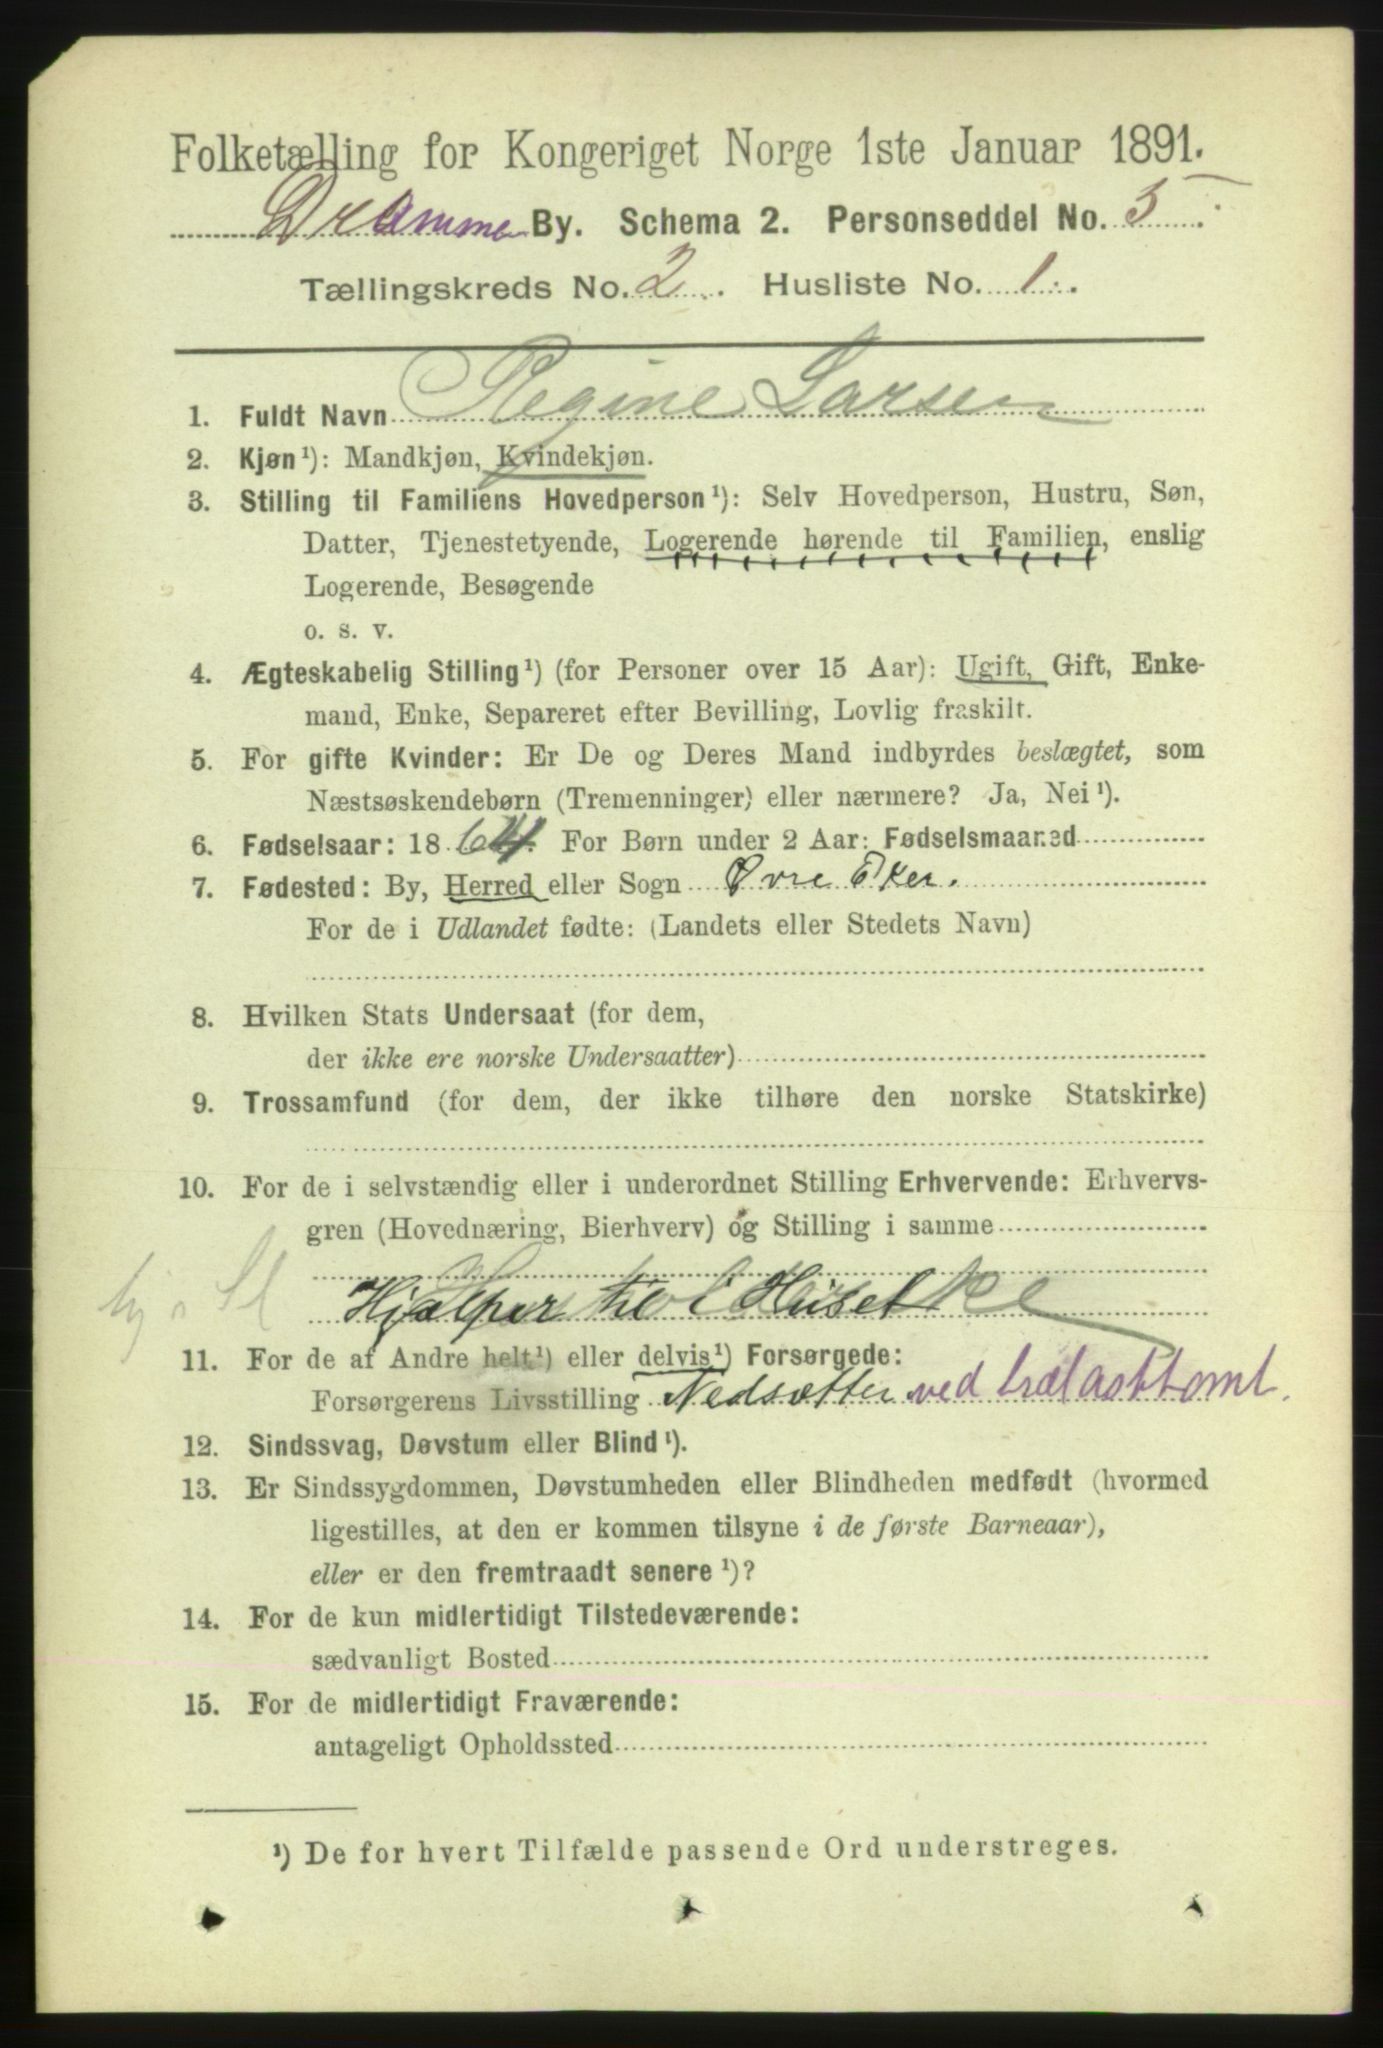 Folketælling for Kongeriget Norge 1ste Januar 1891.
Dramme By. Schema 2. Personseddel No. 5
Tællingskreds No. 2. Husliste No. 1.
1. Fuldt Navn Regine Larsen
2. Kjøn ¹): Mandkjøn, Kvindekjøn.
3. Stilling til Familiens Hovedperson ¹): Selv Hovedperson, Hustru, Søn,
Datter, Tjenestetyende, Logerende hørende til Familien, enslig
Logerende, Besøgende
o. s. v.
4. Ægteskabelig Stilling ¹) (for Personer over 15 Aar): Ugift, Gift, Enke-
mand, Enke, Separeret efter Bevilling, Lovlig fraskilt.
5. For gifte Kvinder: Er De og Deres Mand indbyrdes beslægtet, som
Næstsøskendebørn (Tremenninger) eller nærmere? Ja, Nei ¹).
6. Fødselsaar: 1864. For Børn under 2 Aar: Fødselsmaaned
7. Fødested: By, Herred eller Sogn Øvre Eker.
For de i Udlandet fødte: (Landets eller Stedets Navn)
8. Hvilken Stats Undersaat (for dem,
der ikke ere norske Undersaatter)
9. Trossamfund (for dem, der ikke tilhøre den norske Statskirke)
10. For de i selvstændig eller i underordnet Stilling Erhvervende: Erhvervs-
gren (Hovednæring, Bierhverv) og Stilling i samme
Hjælper til i Huset
11. For de af Andre helt ¹) eller delvis ¹) Forsørgede:
Forsørgerens Livsstilling Nedsætter ved trælasttomt.
12. Sindssvag, Døvstum eller Blind ¹).
13. Er Sindssygdommen, Døvstumheden eller Blindheden medfødt (hvormed
ligestilles, at den er kommen tilsyne i de første Barneaar),
eller er den fremtraadt senere ¹)?
14. For de kun midlertidigt Tilstedeværende:
sædvanligt Bosted
15. For de midlertidigt Fraværende:
antageligt Opholdssted
¹) De for hvert Tilfælde passende Ord understreges.